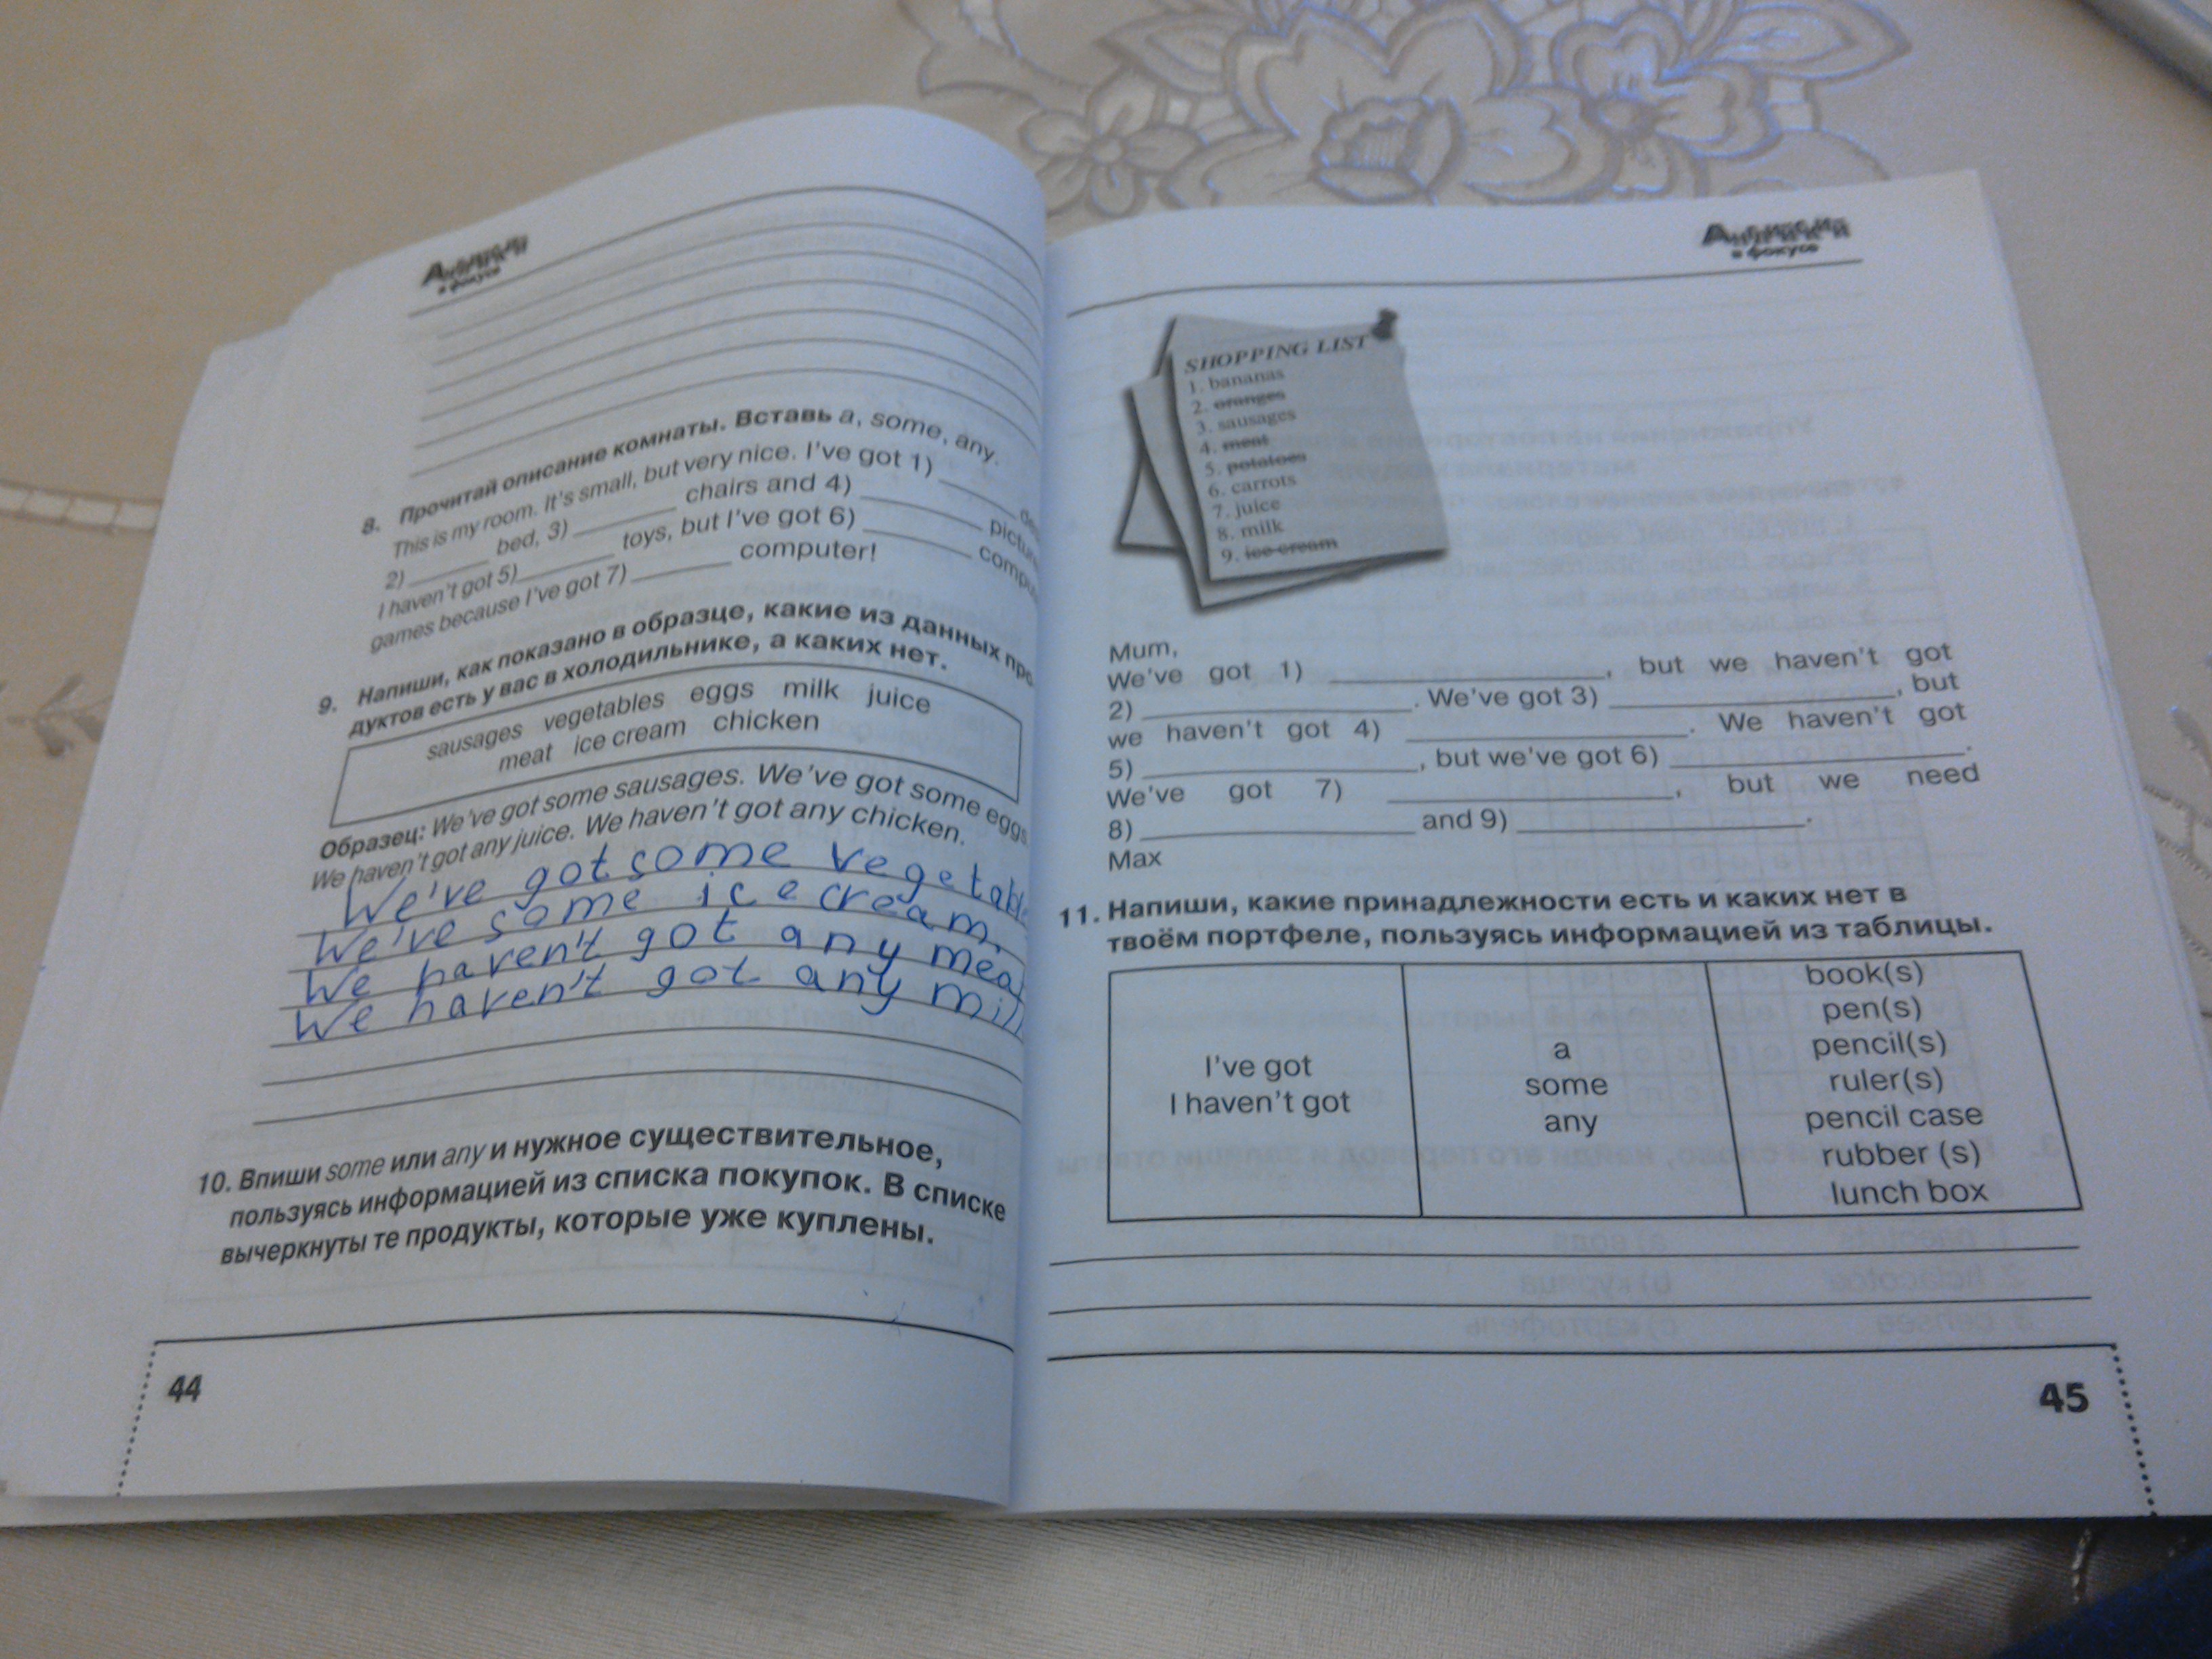 Английский
в фокусе
8. Прочитай описание комнаты. Вставь a, some, any.
This is my room. It's small, but very nice. I've got 1) ______
2) ______ bed, 3) ______ chairs and 4) ______
I haven't got 5) ______ toys, but I've got 6) ______
games because I've got 7) ______ computer!
9. Напиши, как показано в образце, какие из данных
дуктов есть у вас в холодильнике, а каких нет.
sausages vegetables eggs milk juice
meat ice cream chicken
Образец: We've got some sausages. We've got some eggs
We haven't got any juice. We haven't got any chicken.
We've got some
We've some ice cream.
We haven't got any
We haven't got any
10. Впиши some или any и нужное существительное,
пользуясь информацией из списка покупок. В списке
вычеркнуты те продукты, которые уже куплены.
44
Английский
в фокусе
SHOPPING LIST
1. bananas
2. oranges
3. sausages
4. meat
5. potatoes
6. carrots
7. juice
8. milk
9. ice cream
Mum,
We've got 1) ______, but we haven't got
2) ______. We've got 3) ______, but
we haven't got 4) ______. We haven't got
5) ______, but we've got 6) ______.
We've got 7) ______, but we need
8) ______ and 9) ______.
Max
11. Напиши, какие принадлежности есть и каких нет в
твоём портфеле, пользуясь информацией из таблицы.
I've got
I haven't got
a
some
any
book(s)
pen(s)
pencil(s)
ruler(s)
pencil case
rubber (s)
lunch box
45